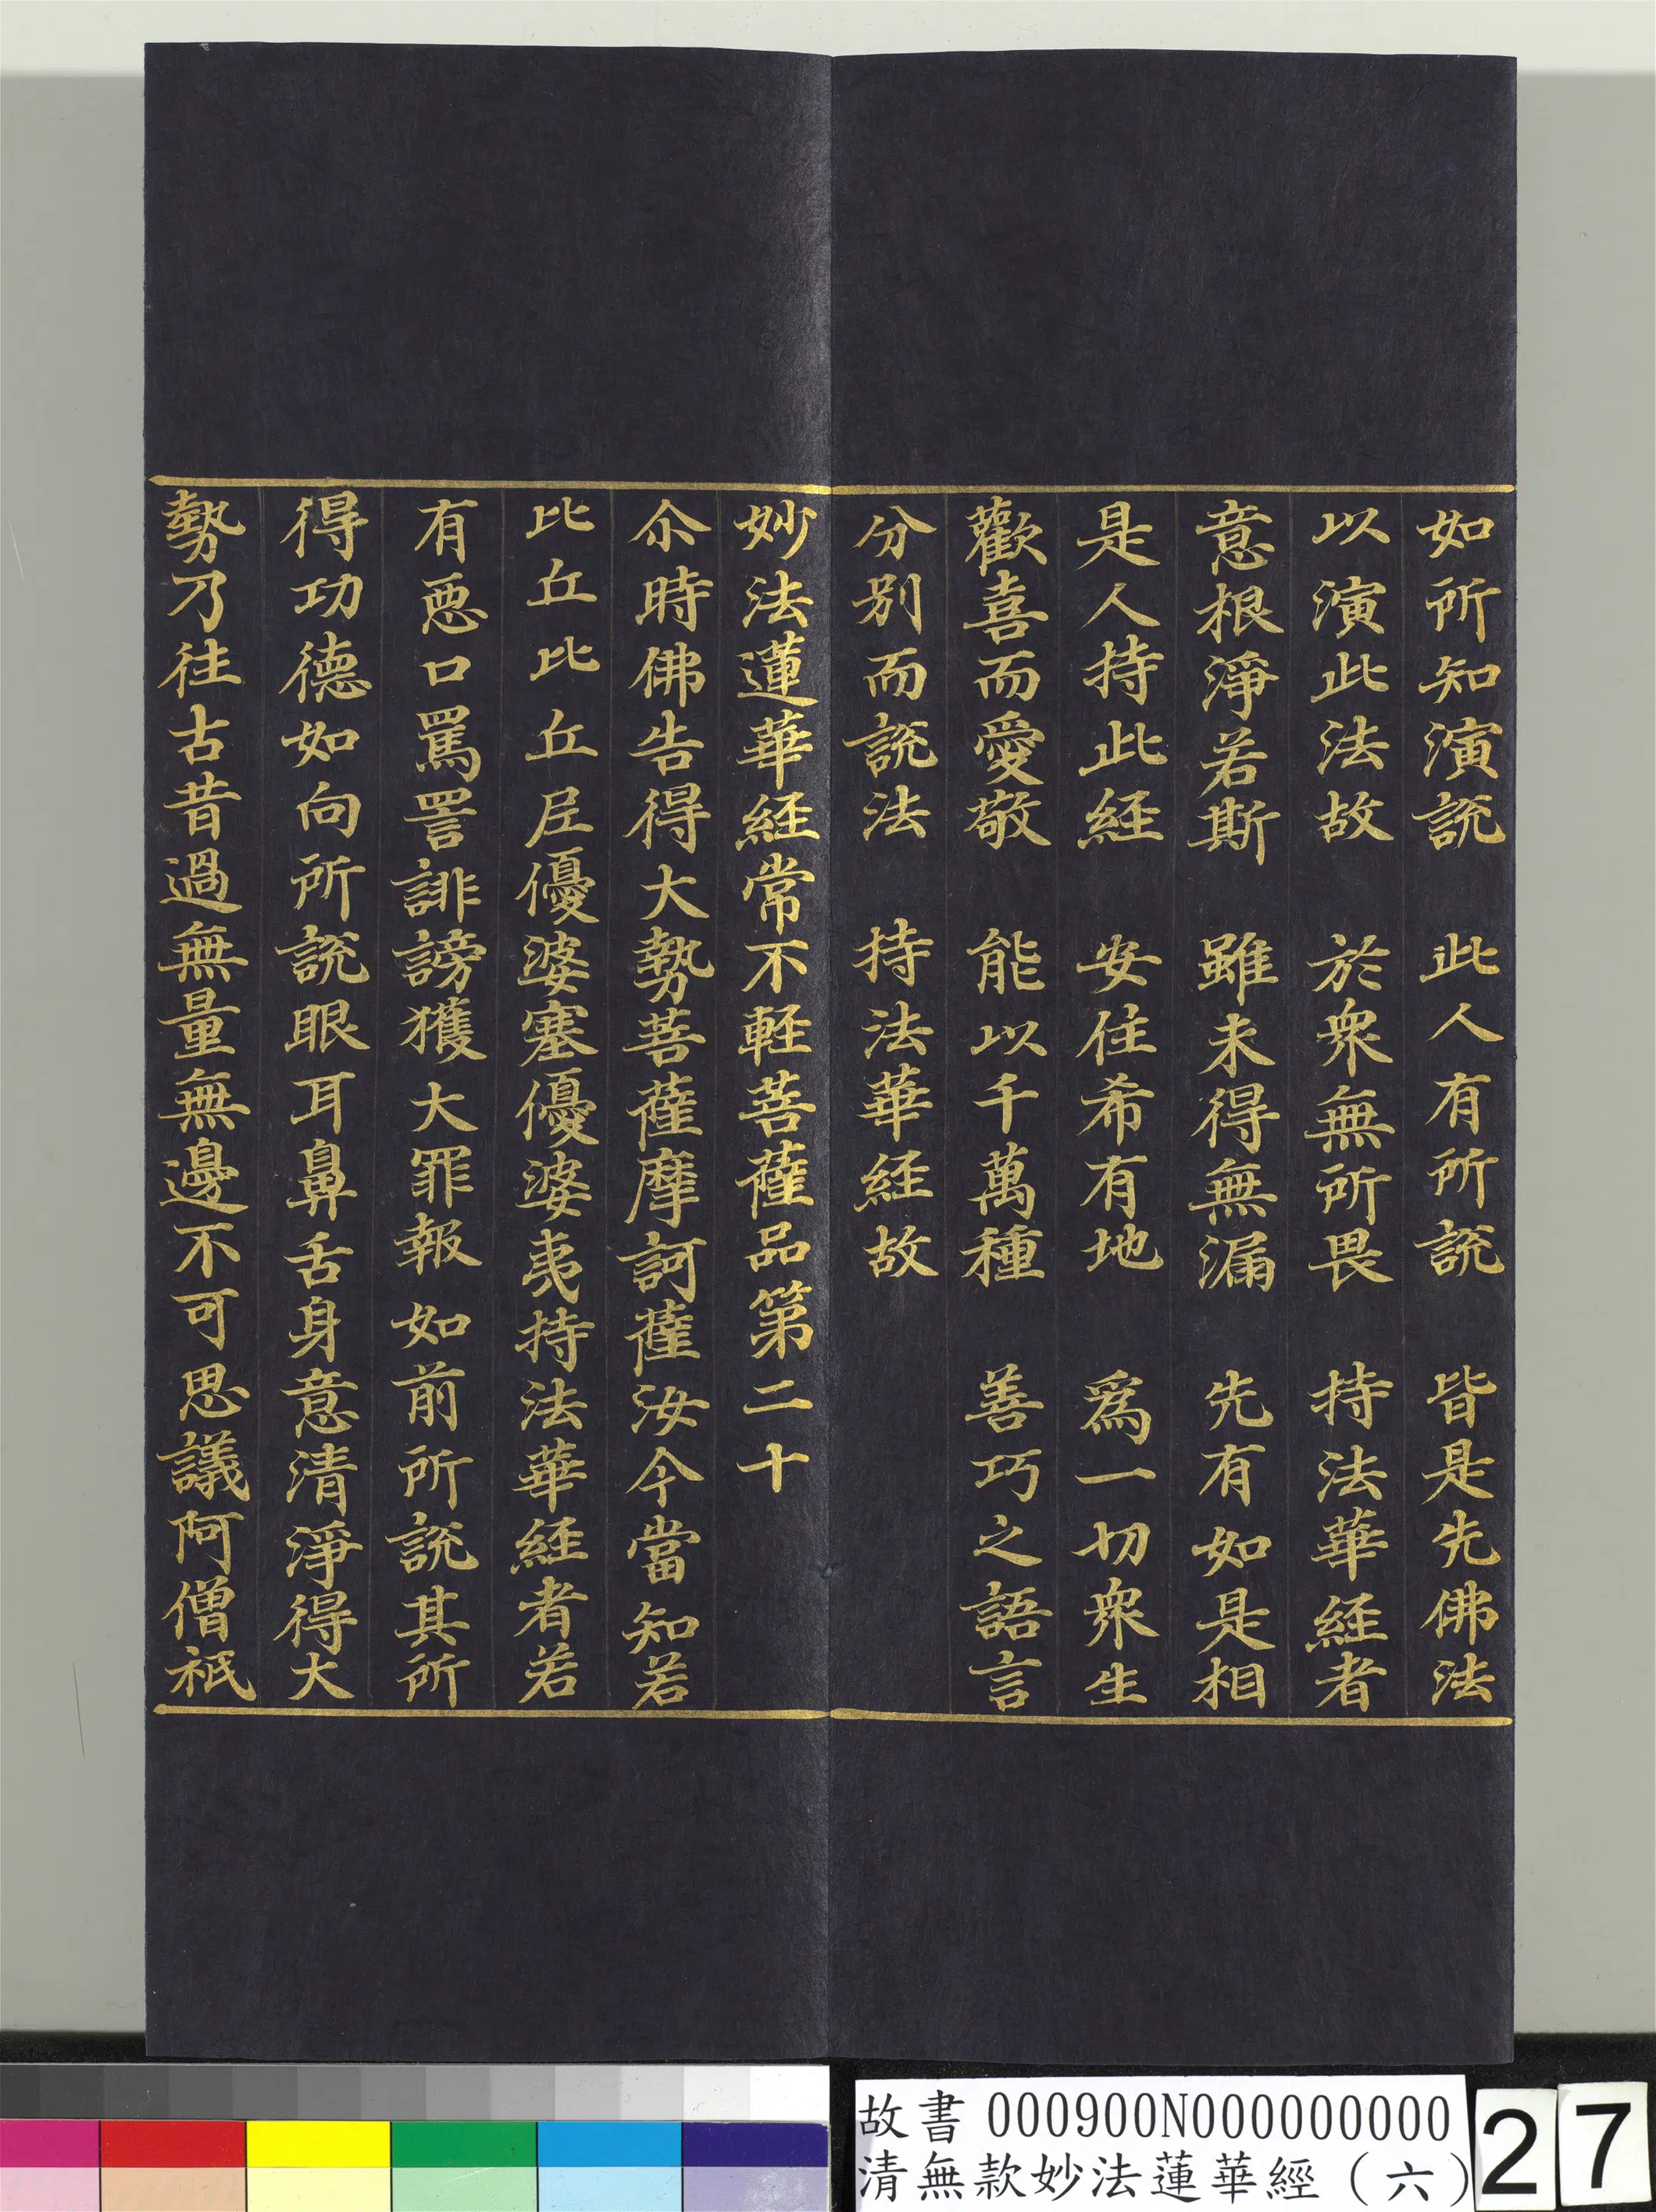 如所知演說　此人有所說　皆是先佛法
以演此法故　於衆無所畏　持法華経者
意根淨若斯　雖未得無漏　先有如是相
是人持此経　安住希有地　爲一切衆生
歡喜而愛敬　能以千萬種　善巧之語言
分別而說法　持法華経故
妙法蓮華経常不軽菩薩品第二十
尒時佛告得大勢菩薩摩訶薩汝今當知若
比丘比丘尼優婆塞優婆夷持法華経者若
有惡口罵詈誹謗獲大罪報如前所說其所
得功德如向所說眼耳鼻舌身意清淨得大
勢乃往古昔過無量無邊不可思議阿僧祇
故書 000900N000000000
清無款妙法蓮華經（六）
27